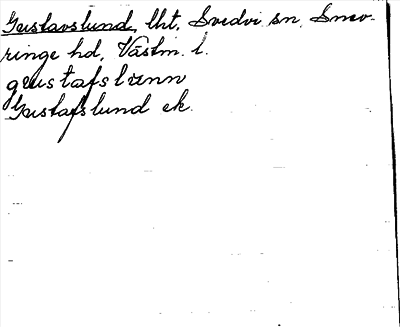 Gustavslund, lht, Svedvi sn, Snev-
ringe hd, Västm. l.
gustafslunn
Gustafslund ek.